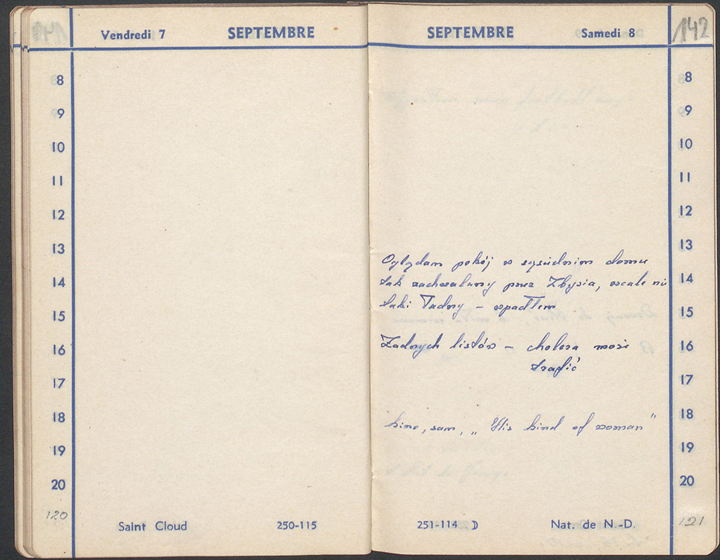 Vendredi 7 SEPTEMBRE
8
9
10
11
12
13
14
15
16
17
18
19
20
120
Saint Cloud 250-115
SEPTEMBRE Samedi 8 142
8
9
10
11
12
13
Oglądam pokój w sąsiednim domu
14
tak zachwalany przez Zbysia, wcale nie
taki ładny – wpadłem
15
Żadnych listów – cholera może
16
trafić
17
18
kino, sam, „His kind of woman"
19
20
251-114 Nat. de N.-D. 121